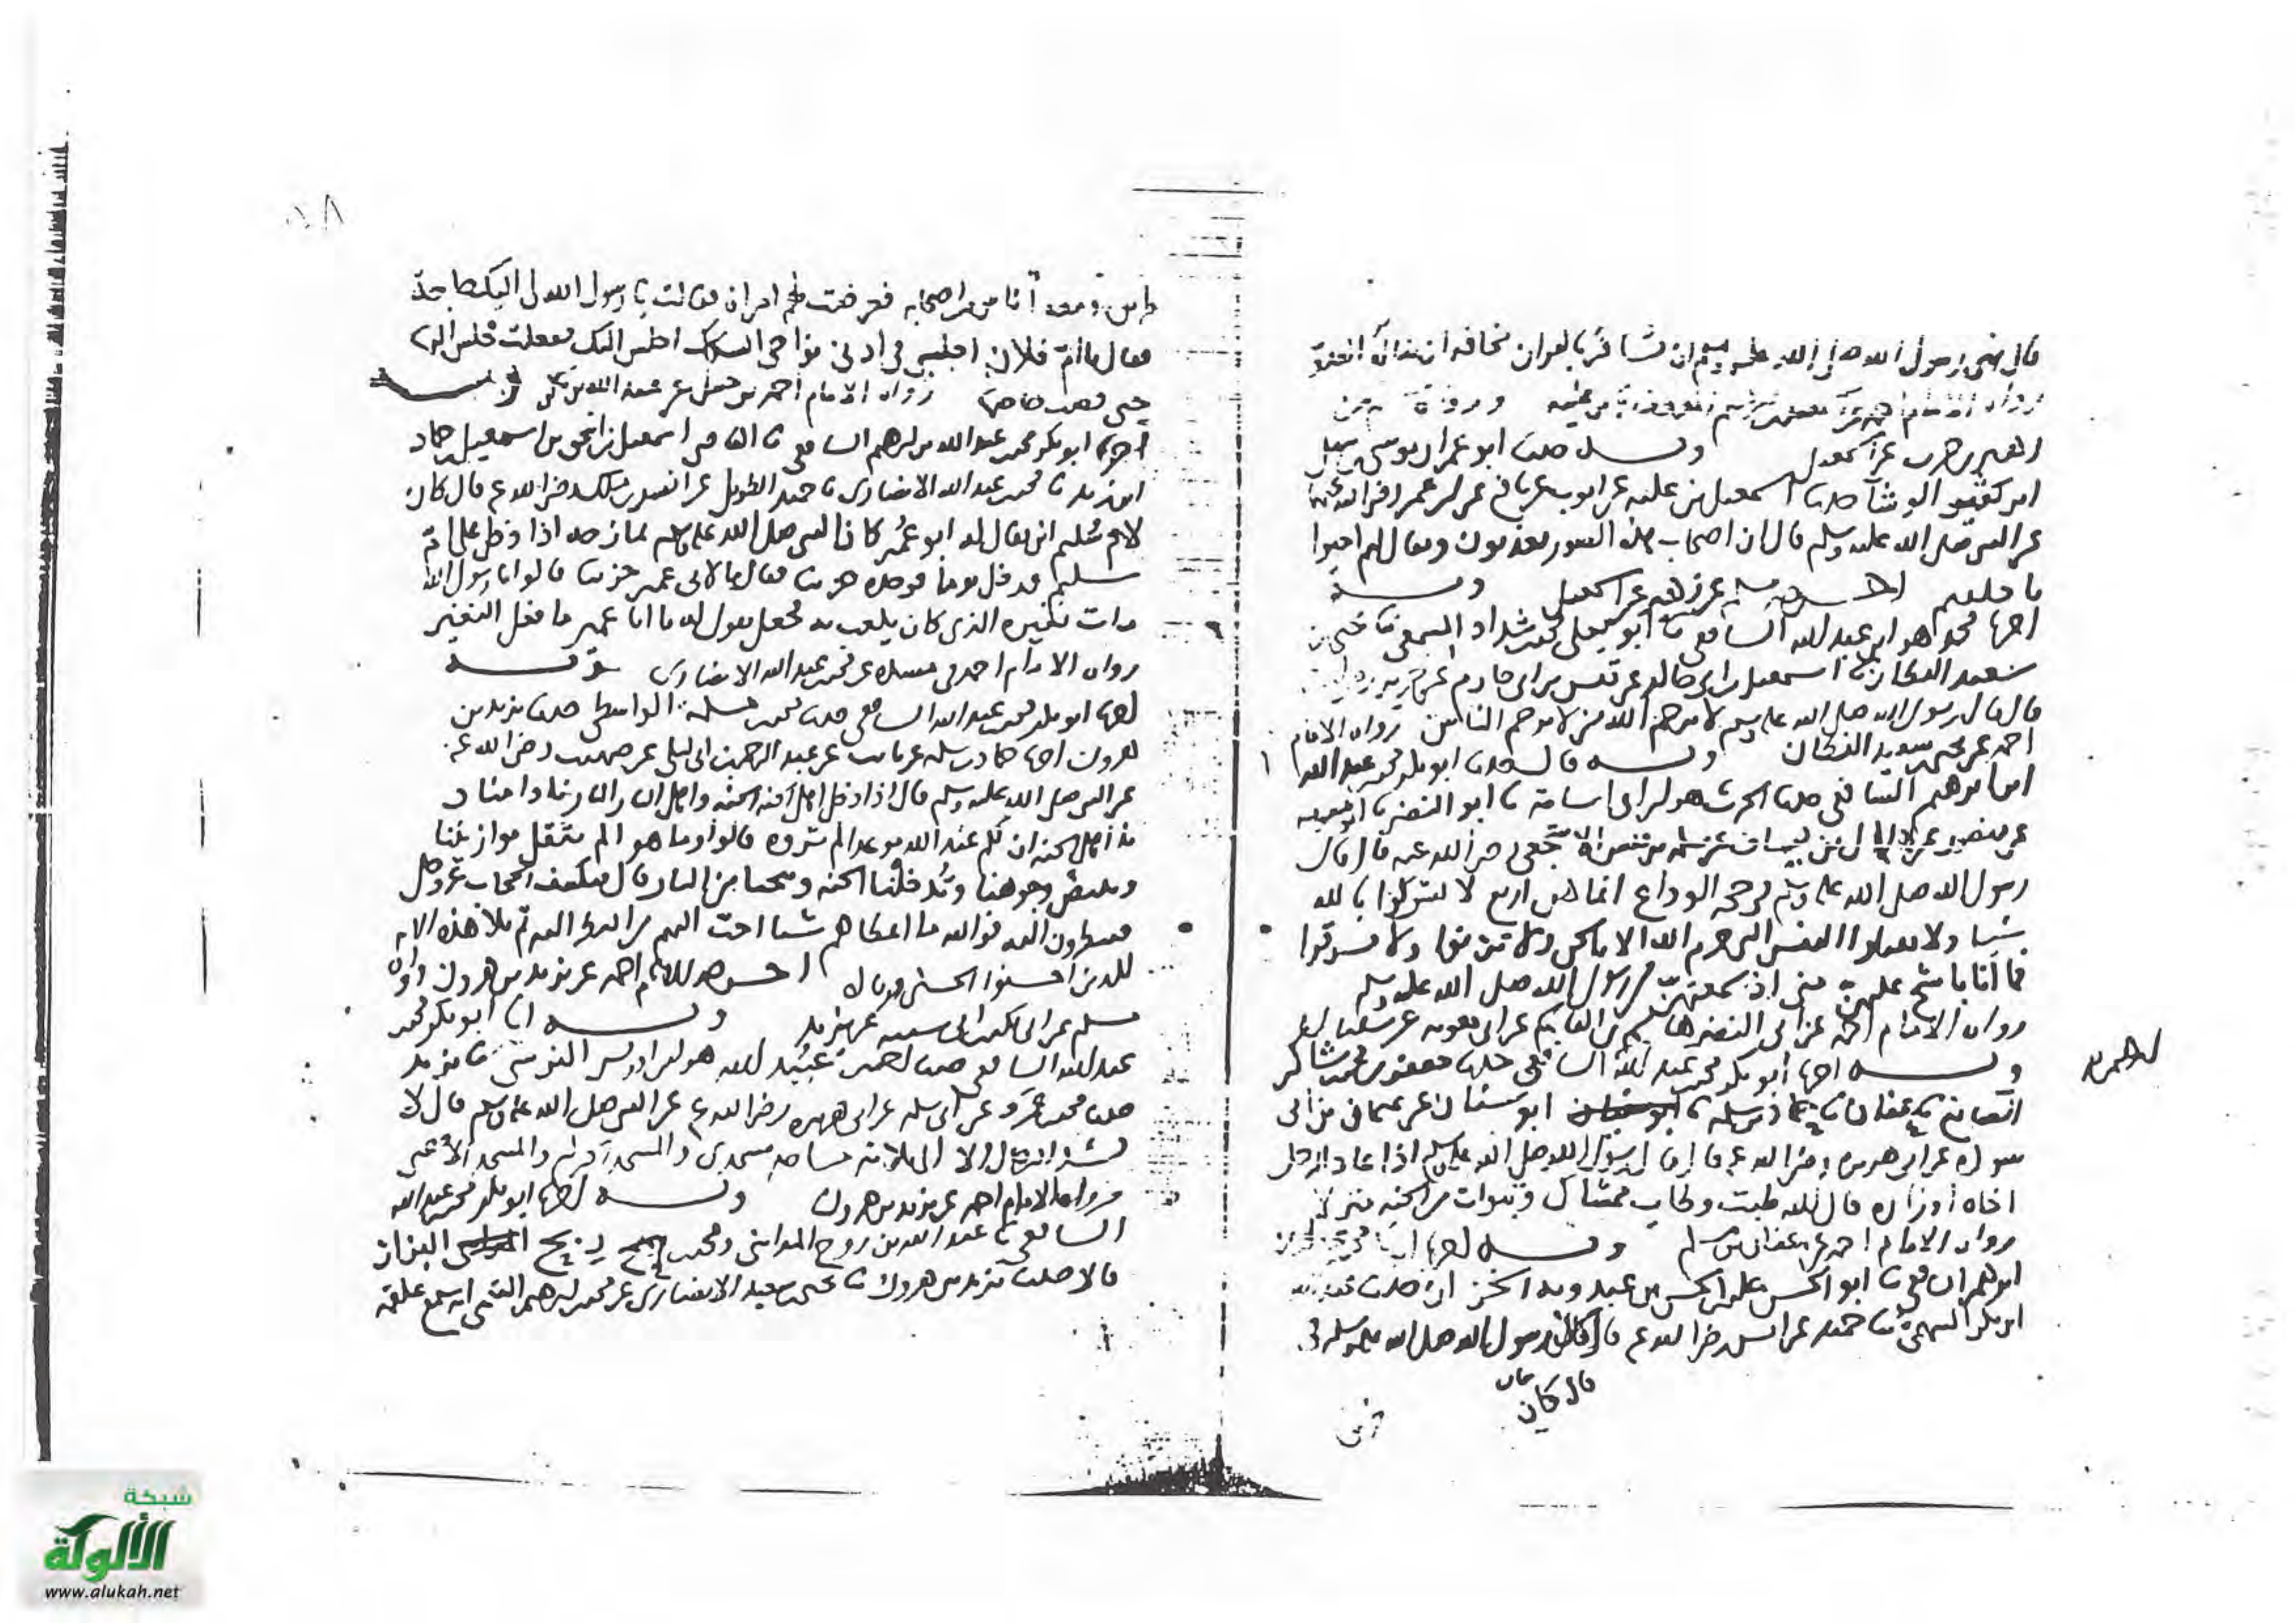 قال نهى رسول الله صلى الله عليه وسلم ان نسافر بالقران مخافة ان يناله العدو
رواه الامام احمد
زهير بن حرب عن اسمعيل وبه حدثنا ابو عمران موسى بن سهل
ابن كثير الوشا حدثنا اسمعيل بن عليه عن ايوب عن نافع عن ابن عمر رضي الله عنهما
عن النبي صلى الله عليه وسلم قال ان اصحاب هذه الصور يعذبون ويقال لهم احيوا
ما خلقتم عن زهير عن اسمعيل وبه
اخبرنا محمد هو ابن عبد الله الشافعي ثنا ابو يعلى محمد بن شداد المسمعي ثنا يحيى بن
سعيد القطان ثنا اسمعيل بن ابي خالد عن قيس بن ابي حازم عن جرير
قال قال رسول الله صلى الله عليه وسلم لا يرحم الله من لا يرحم الناس رواه الامام
احمد عن يحيى بن سعيد القطان وبه قال حدثنا ابو بكر محمد بن عبد الله
ابن ابرهيم الشافعي حدثنا الحرث هو ابن ابي اسامة ثنا ابو النضر ثنا ابو معويه
عن منصور عن هلال بن يساف عن سلمة بن قيس الاشجعي رضي الله عنه قال قال
رسول الله صلى الله عليه وسلم في حجة الوداع انما هن اربع لا تشركوا بالله
شيا ولا تقتلوا النفس التي حرم الله الا بالحق ولا تزنوا ولا تسرقوا
فما انا باشح عليهن مني اذ سمعتهن من رسول الله صلى الله عليه وسلم
رواه الامام احمد عن ابي النضر هاشم بن القاسم عن ابي معويه
وبه اخبرنا ابو بكر محمد بن عبد الله الشافعي حدثنا جعفر بن محمد بن شاكر
الصائغ ثنا عفان ثنا حماد بن سلمه ثنا ابو سنان عن عثمان بن ابي
سوده عن ابي هريره رضي الله عنه قال قال رسول الله صلى الله عليه وسلم اذا عاد الرجل
اخاه او زاره قال الله طبت وطاب ممشاك وتبوات من الجنه منزلا
رواه الامام احمد عن عفان بن مسلم وبه اخبرنا
ابرهيم الشافعي ثنا ابو الحسن علي بن الحسن بن عبدويه الخزاز حدثنا عبد الله
ابن بكر السهمي ثنا حميد عن انس رضي الله عنه قال كان رسول الله صلى الله عليه وسلم في
قال كان
طريق ومعه اناس من اصحابه فعرضت لهم امراة فقالت يا رسول الله لي اليك حاجة
فقال يا ام فلان اجلسي في ادنى نواحي السكك اجلس اليك ففعلت فجلس اليها
حتى قضت حاجتها رواه الامام احمد بن حنبل عن عبد الله بن بكر
اخبرنا ابو بكر محمد بن عبد الله بن ابرهيم الشافعي ثنا القاضي اسمعيل بن اسحق بن اسمعيل بن حماد
ابن زيد ثنا محمد بن عبد الله الانصاري ثنا حميد الطويل عن انس بن ملك رضي الله عنه قال كان
لام سليم ابن يقال له ابو عمير كان النبي صلى الله عليه وسلم يمازحه اذا دخل على ام
سليم فدخل يوما فوجده حزينا فقال ما لابي عمير حزينا قالوا يا رسول الله
مات نغيره الذي كان يلعب به فجعل يقول له يا ابا عمير ما فعل النغير
رواه الامام احمد في مسنده عن محمد بن عبد الله الانصاري وبه
اخبرنا ابو بكر محمد بن عبد الله الشافعي حدثنا محمد بن مسلمة الواسطي حدثنا يزيد بن
هرون اخبرنا حماد بن سلمه عن ثابت عن عبد الرحمن بن ابي ليلى عن صهيب رضي الله عنه
عن النبي صلى الله عليه وسلم قال اذا دخل اهل الجنه الجنه واهل النار النار نادا مناد
يا اهل الجنه ان لكم عند الله موعدا لم تروه قالوا وما هو الم يثقل موازيننا
ويبيض وجوهنا ويدخلنا الجنه وينجنا من النار قال فيكشف الحجاب عز وجل
فينظرون اليه فوالله ما اعطاهم شيا احب اليهم من النظر اليه ثم تلا هذه الايه
للذين احسنوا الحسنى وزياده اخرجه الامام احمد عن يزيد بن هرون ورواه
مسلم عن ابي بكر بن ابي شيبه عن يزيد وبه انا ابو بكر محمد بن
عبد الله الشافعي حدثنا محمد بن عبيد الله هو ابن ادريس النرسي ثنا يزيد
حدثنا محمد بن عمرو عن ابي سلمه عن ابي هريره رضي الله عنه عن النبي صلى الله عليه وسلم قال لا
تشد الرحال الا الى ثلاثة مساجد مسجدي والمسجد الحرام والمسجد الاقصى
رواه الامام احمد عن يزيد بن هرون وبه اخبرنا ابو بكر محمد بن عبد الله
الشافعي ثنا عبد الله بن روح المدائني ومحمد بن ربح البزاز
قالا حدثنا يزيد بن هرون ثنا يحيى بن سعيد الانصاري عن محمد بن ابرهيم التيمي انه سمع علقمة
شبكة
الألوكة
www.alukah.net